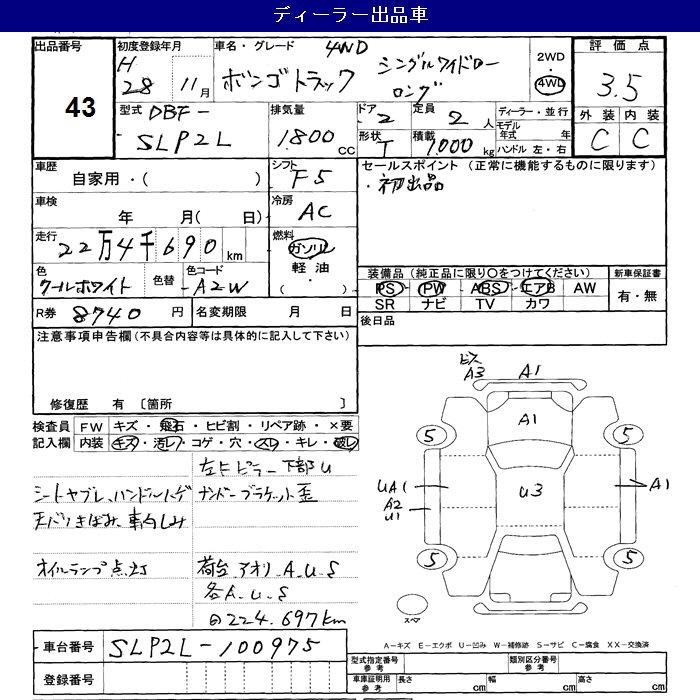 ディーラー出品車
出品番号
43
初度登録年月
H
28年 11月
車名・グレード 4WD
ボンゴトラック シングルワイドロー
ロング
2WD
・
4WD
評価点
3.5
外装 内装
C C
型式 DBF-
SLP2L
排気量
1800 CC
ドア 2
定員 2人
形状 T
積載 1000 kg
ディーラー・並行
モデル
年式 年
ハンドル 左・右
車歴
自家用・( )
シフト
F5
セールスポイント (正常に機能するものに限ります)
・初出品
車検
年 月( 日)
冷房
AC
走行
22万4千690km
燃料
ガソリン
軽油・
( )
色
クールホワイト
色替
色コード
A2W
装備品 (純正品に限り〇をつけてください)
新車保証書
PS ・ PW ・ ABS ・ エアB AW
SR ナビ TV カワ
有・無
R券 8740円
名変期限 月 日
後日品
注意事項申告欄(不具合内容等は具体的に記入して下さい)
修復歴 有 〔箇所 〕
検査員
記入欄
FW キズ・飛石・ヒビ割・リペア跡・×要
内装 キズ・汚レ・コゲ・穴・スレ・キレ・破レ
左Bピラー下部U
シートヤブレ、ハンドルハゲ ナンバーブラケット歪
天バリきばみ、車内しみ
オイルランプ点灯 荷台アオリ A.U.S
各A.U.S
224.697km
車台番号 SLP2L-100975
登録番号
ビス
A3 A1
A1
5 5
UA1
A2
U1
U3
A1
5 5
スペア
A-キズ E-エクボ U-凹み W-補修跡 S-サビ C-腐食 XX-交換済
型式指定番号
参考
類別区分番号
参考
車庫証明用
参考
長さ cm 幅 cm 高さ cm